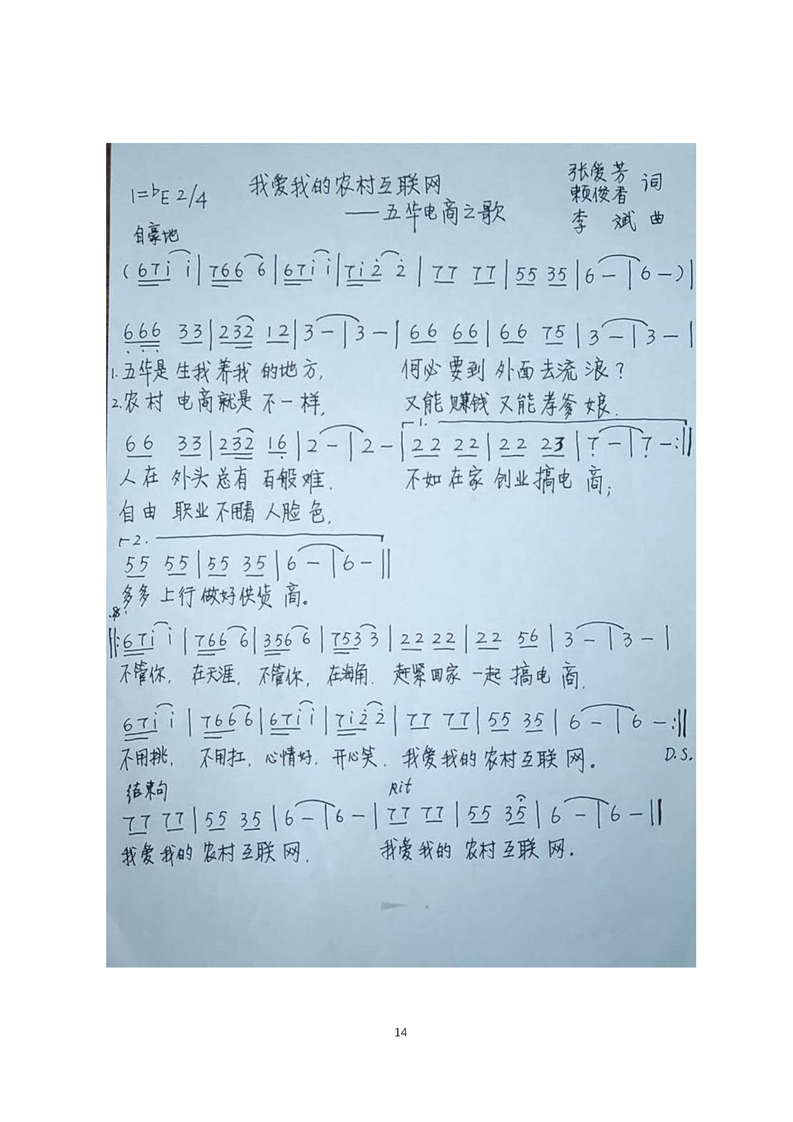 我爱我的农村互联网
1=♭E 2/4
——五华电商之歌
张爱芳
赖俊香 词
李 斌 曲
自豪地
(67i i|766 6|67i i|7i2 2|77 77|55 35|6 —|6 —)|
666 33|232 12|3 —|3 —|66 66|66 75|3 —|3 —|
1.五华是 生我养我 的地方, 何必要到 外面去流 浪?
2.农村 电商就是 不一样, 又能赚钱 又能孝爹 娘.
66 33|232 16|2 —|2 —|1. 22 22|22 23|7 —|7 —:||
人在 外头总有 百般难. 不如在家 创业搞电 商;
自由 职业不用看 人脸色,
2.
55 55|55 35|6 —|6 —||
多多上行 做好供侦 商。
||:67i i|766 6|356 6|753 3|22 22|22 56|3 —|3 —|
不管你, 在天涯, 不管你, 在海角. 赶紧回家 一起搞电 商.
67i i|766 6|67i i|7i2 2|77 77|55 35|6 —|6 —:||
不用挑, 不用扛, 心情好, 开心笑. 我爱我的 农村互联 网。 D.S.
结束句 Rit
77 77|55 35|6 —|6 —|77 77|55 35|6 —|6 —||
我爱我的 农村互联 网. 我爱我的 农村互联 网。
14